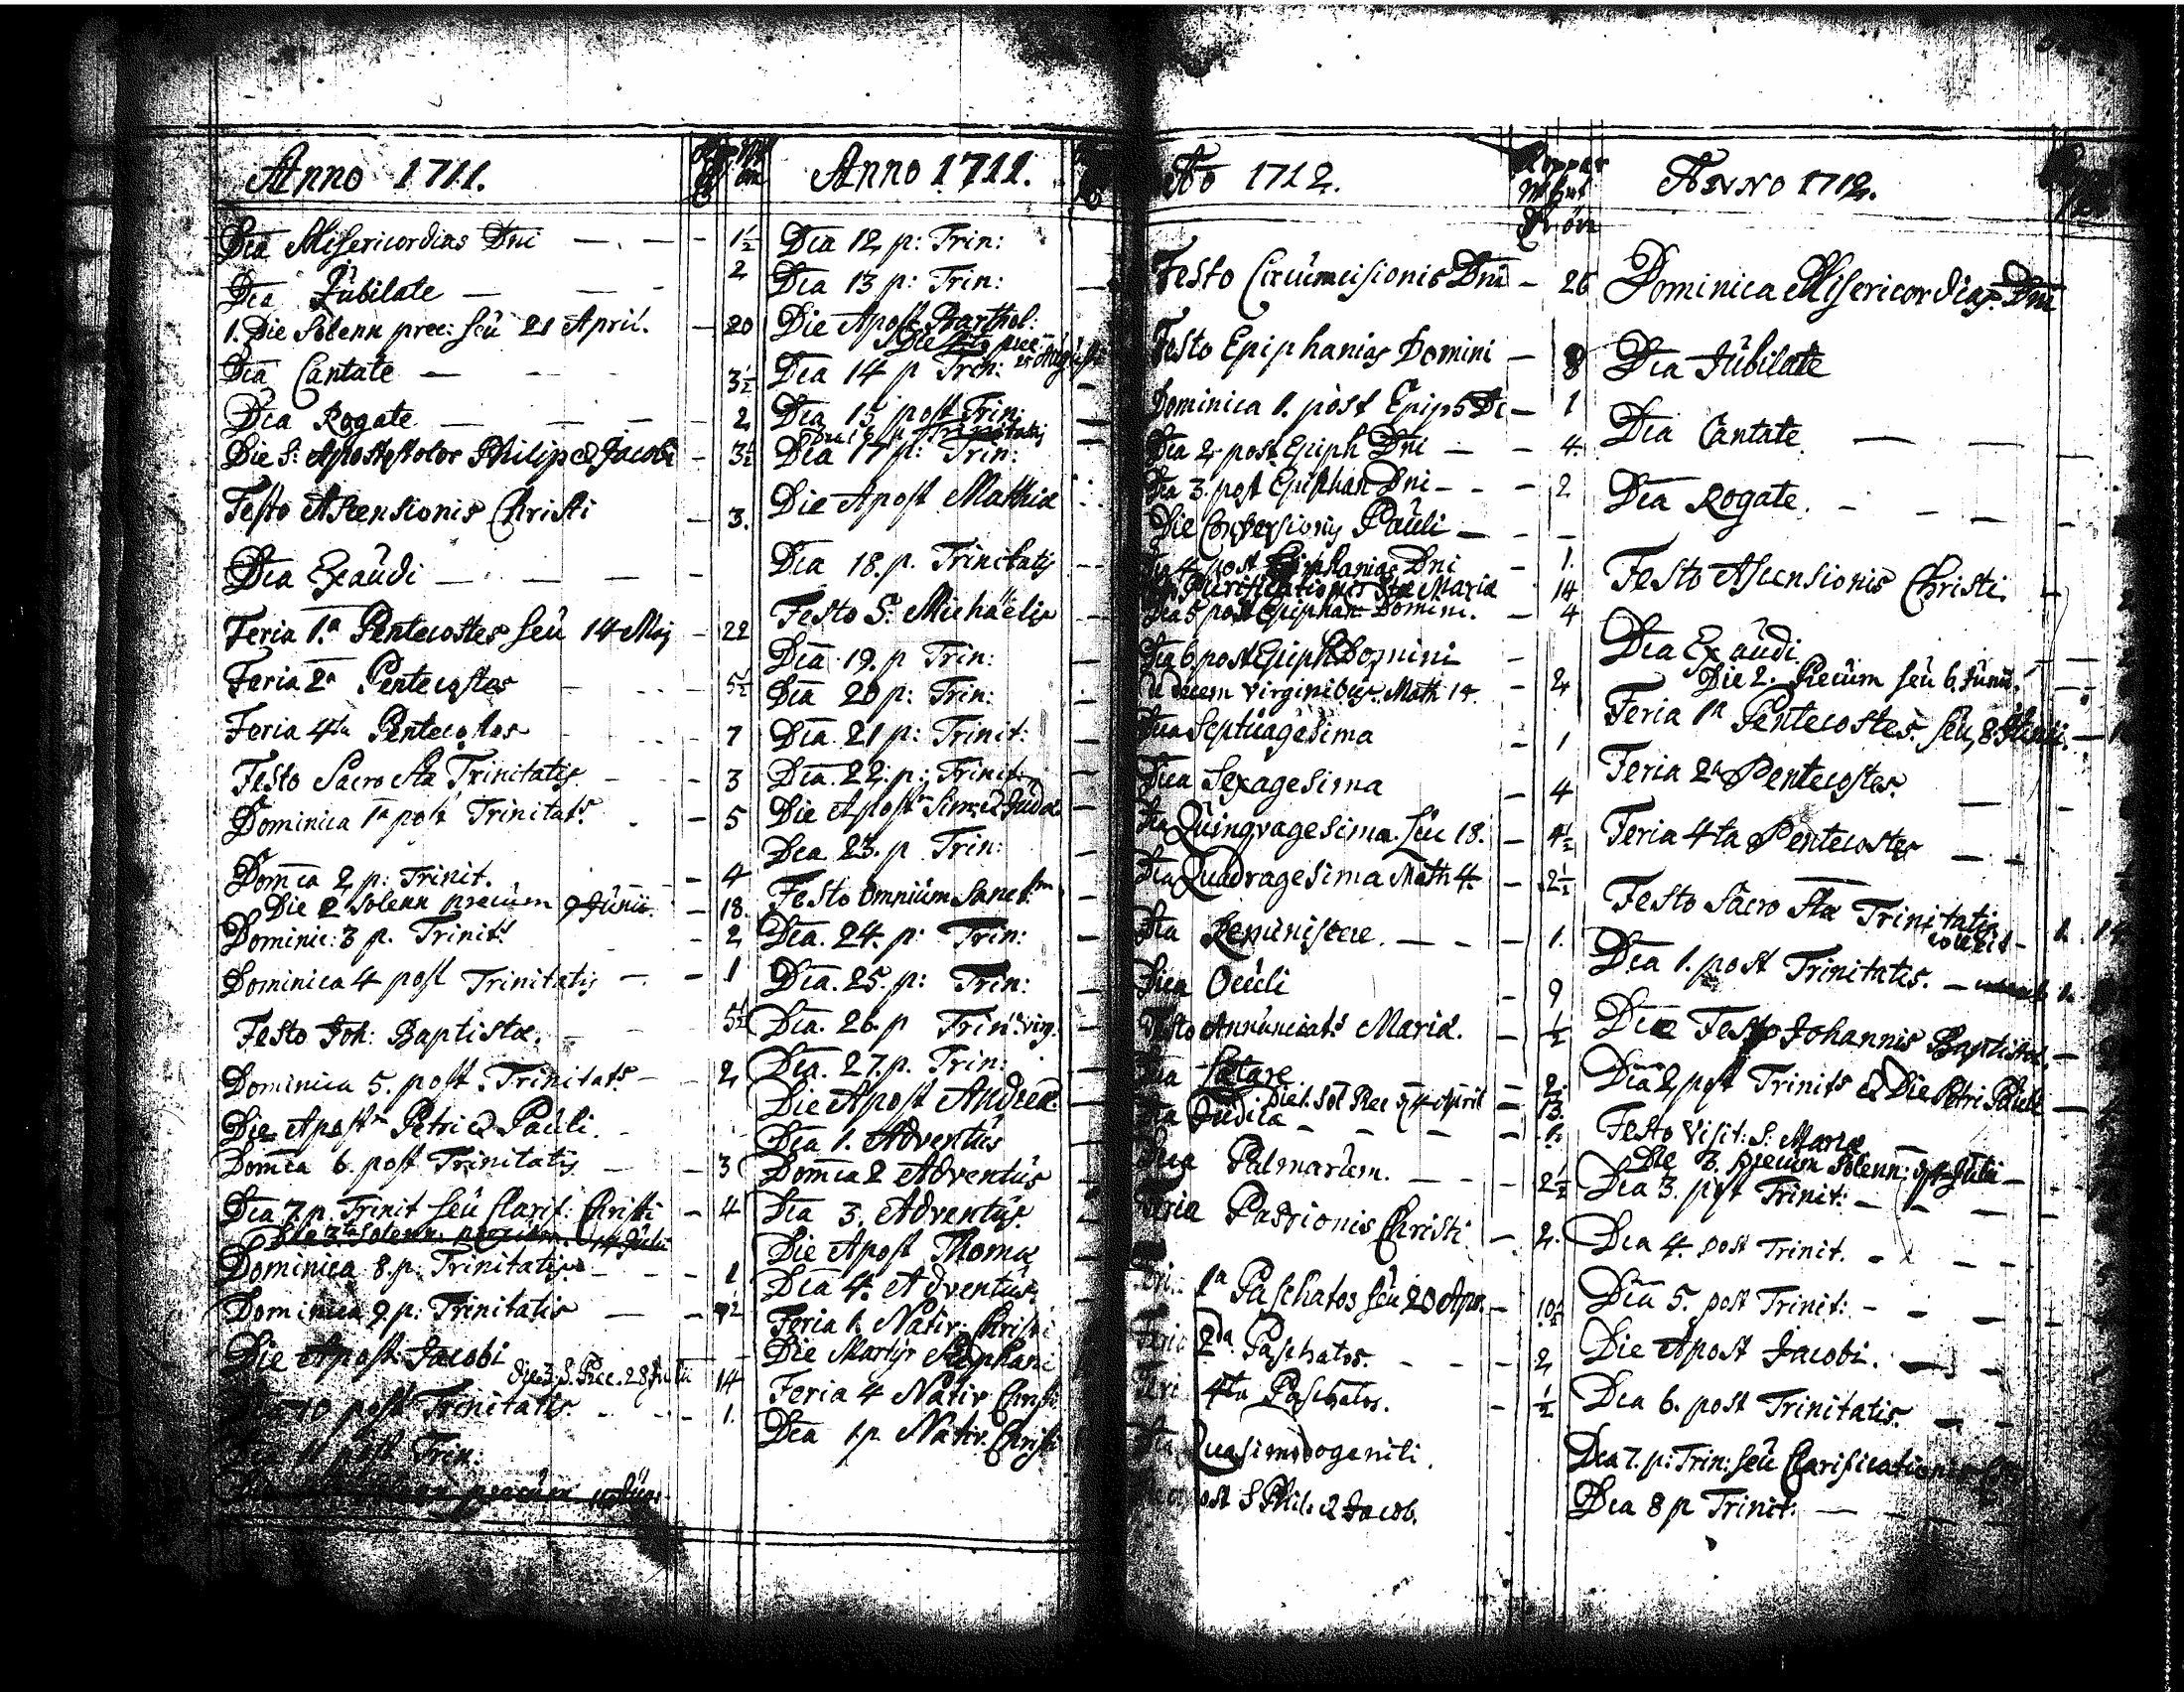 Anno 1711.
Dca Misericordias Dni — . — - 1½
Dca Jubilate — — - 2
1. Die Solenn prec: seu 21 April. - 20
Dca Cantate — - - 3½
Dca Rogate — — — 2
Die S: Apostolor Philip & Jacobi - 3½
Festo Ascensionis Christi - 3.
Dca Exaudi — . — — -
Feria 1.a Pentecostes seu 14 Maj - 22
Feria 2a Pentecostes - 5½
Feria 4ta Pentecostes - 7
Festo Sacro Sta Trinitatis - - 3
Dominica 1a post Trinitats - 5
Domca 2 p: Trinit. - 4
Die 2 Solenn precum 9 Junii. - 18.
Dominic: 3 p. Trinits - 2
Dominica 4 post Trinitatis — - 1
Festo Joh: Baptistæ. - 5½
Dominica 5. post Trinitats - 2
Die Apost Petri & Pauli.
Domca 6. post Trinitatis — - 3
Dca 7 p. Trinit seu Clarif: Christi - 4
Die 3ta Solenn precum 14 Julii
Dominica 8. p: Trinitatis - - - 1
Dominica 9. p: Trinitatis —
Die Apost: Jacobi
Die 3. S. Prec. 28 Julii 14
10 post Trinitatis - 1.
11 post Trin:
Anno 1711.
Dca 12 p: Trin:
Dca 13 p: Trin:
Die Apost Barthol:
Dca 14 p Trin:
Dca 15 post Trin:
Dca 17 p: Trin:
Die Apost Mathiæ
Dca 18. p. Trinitatis
Festo S. Michaelis
Dca 19. p Trin:
Dca 20 p: Trin:
Dca. 21 p: Trinit:
Dca. 22. p: Trinit:
Die Apost Sim: & Judæ
Dca 23. p Trin:
Festo Omnium Sanct
Dca. 24. p: Trin:
Dca. 25. p: Trin:
Dca. 26. p Trin: virg.
Dca. 27. p. Trin:
Die Apost Andreæ.
Dca 1. Adventus
Domca 2 Adventus
Dca 3. Adventus
Die Apost Thomæ
Dca 4. Adventus.
Feria 1. Nativ: Christi
Die Martyr Stephani
Feria 4 Nativ Christi
Dca 1. p. Nativ. Christi
Ao 1712.
Festo Circumcisionis Dni - 26
Festo Epiphanias Domini — 8
Dominica 1. post Epiph Dc — 1
Dca 2. post Epiph Dni — - 4.
Dca 3. post Epiphan Dni - - - 2
Die Conversionis Pauli — - -
4 post Epiphanias Dni - 1.
Purificationis Stæ Mariæ 14
Dca 5 post Epiphan Domini. - 4
Dca 6. post Epiph Domini -
decem Virginibus. Math 14. - 2
Dca Septuagesima - 1
Dca Sexagesima - 4
Dca Quinqvagesima seu 18. - 4½
Dca Quadragesima Math 4. - 2½
Dca Reminiscere. — - - 1.
Dica Oculi - 9
Festo Annunciats Mariæ. - ½
Dca Lætare
Die 1. Sol Prec 4 April - 13.
Dca Judica — — —
Dca Palmarum. — - - 2½
Feria Passionis Christi - 2.
1a Paschatos seu 20 Apr. - 10½
Feria 2da Paschatos. - - - 2
Feri 4ta Paschatos. - ½
Dca Quasimodogeniti.
ost S Phil. & Jacob.
Anno 1712.
Dominica Misericordias. Dni
Dca Jubilate
Dca Cantate. — —
Dca Rogate. - - -
Festo Ascensionis Christi.
Dca Exaudi.
Die 2. Precum seu 6. Junii.
Feria 1a Pentecostes. seu 8. Junii.
Feria 2a Pentecostes.
Feria 4ta Pentecostes
Festo Sacro Stæ Trinitatis
Dca 1. post Trinitatis.
Die Festo Johannis Baptistæ
Dca 2 post Trinits & Die Petri Pauli
Festo Visit: S: Mariæ
Die 3. precum Solenn: 4 Julii
Dca 3. post Trinit: -
Dca 4. post Trinit. -
Dca 5. post Trinit: -
Die Apost Jacobi. —
Dca 6. post Trinitatis.
Dca 7. p: Trin: seu Clarificationis
Dca 8 p Trinit. —